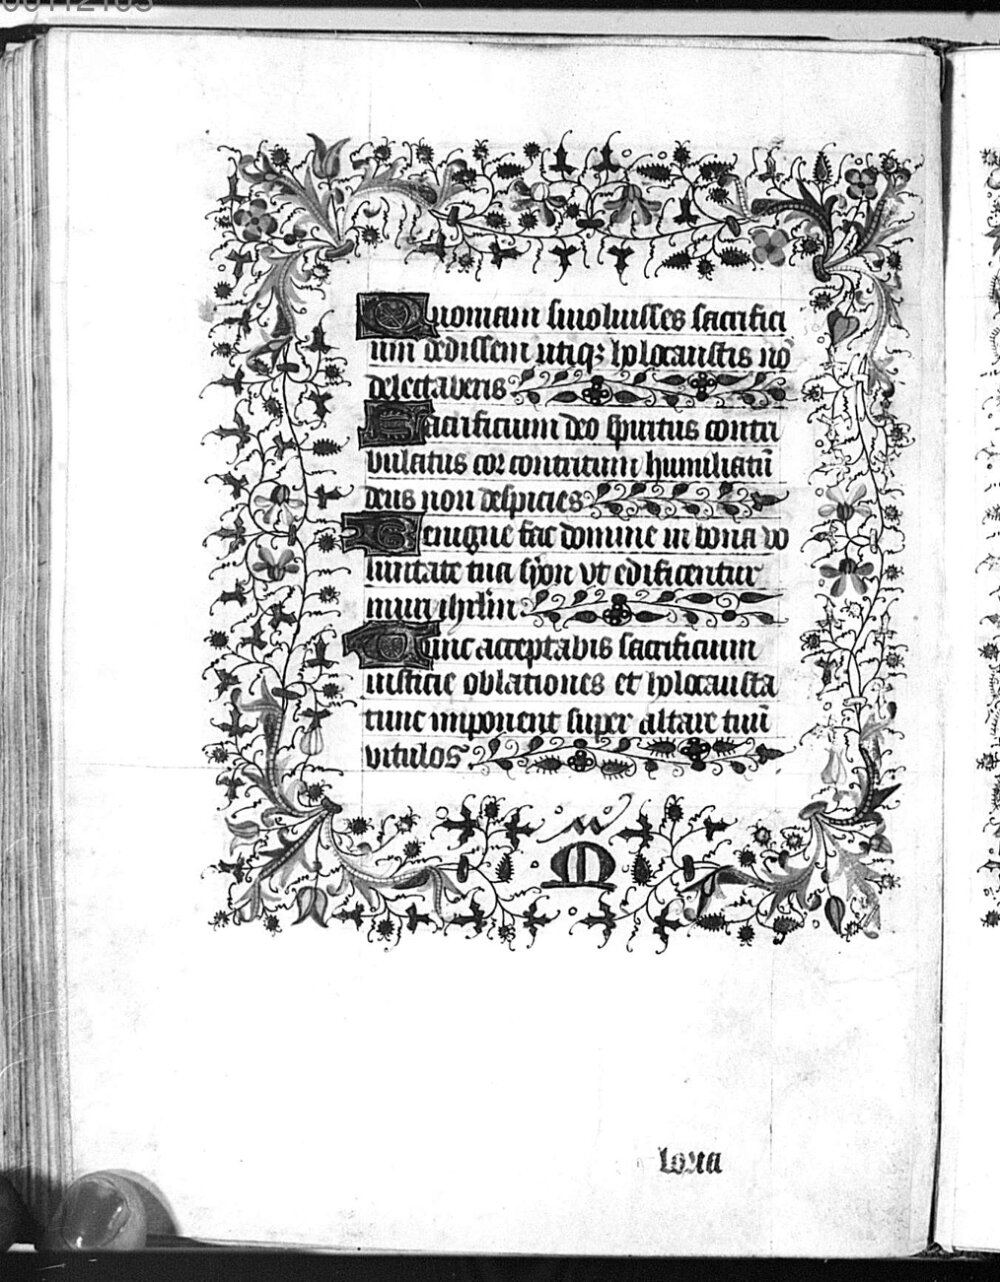 00112103
Quoniam si uoluisses sacrifici
um dedissem utiqꝫ holocaustis nõ
delectaberis
Sacrificium deo spiritus contri
bulatus cor contritum humiliatũ
deus non despicies
Benigne fac domine in bona vo
luntate tua syon vt edificentur
muri ihrlm̃
Tunc acceptabis sacrificium
iusticie oblationes et holocausta
tunc imponent super altare tuũ
vitulos.
M